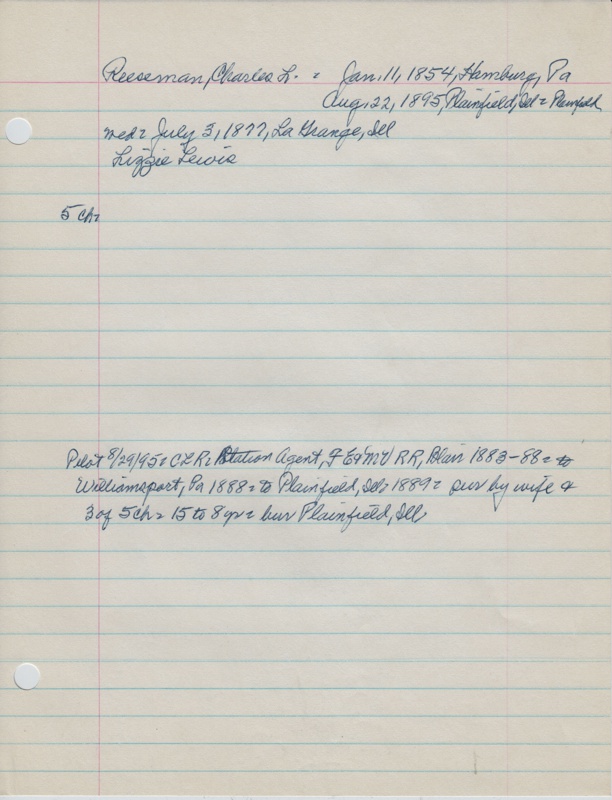 Reeseman, Charles L. = Jan. 11, 1854, Hamburg, Pa
Aug. 22, 1895, Plainfield, Ill = Plainfield
med = July 3, 1877, La Grange, Ill
Lizzie Lewis
5 ch =
Pilot 8/29/95 = CLR = Station Agent, F E & MV RR, Blair 1883-88 = to
Williamsport, Pa 1888 = to Plainfield, Ill = 1889 = sur by wife &
3 of 5 ch = 15 to 8 yr = bur Plainfield, Ill